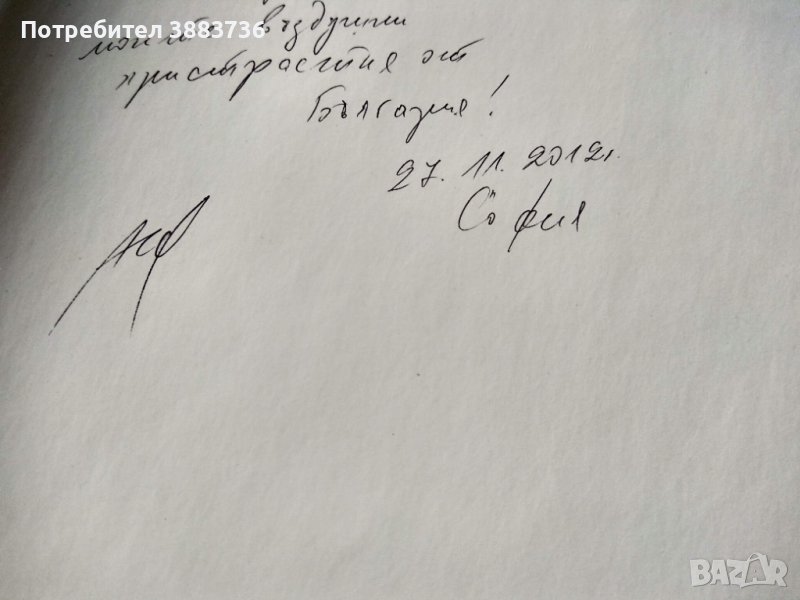 Потребител 3883736
моите въздушни
пристрастия от
България!
27.11.2012г.
София
BAZAR